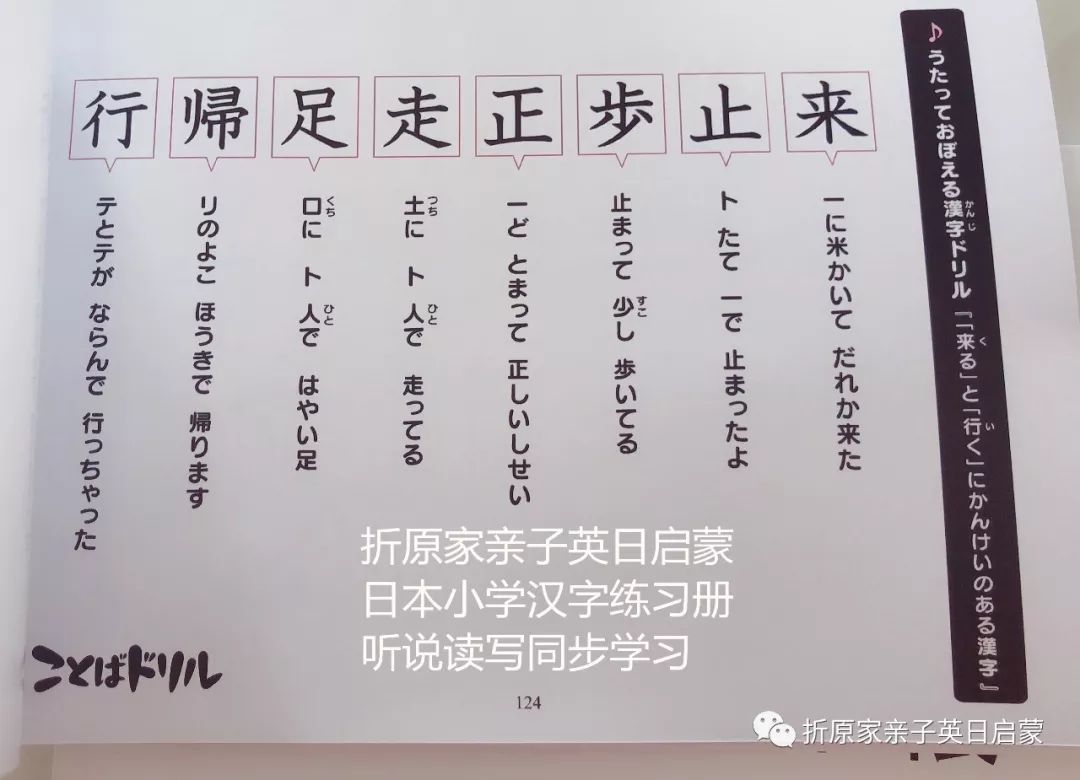 ♪うたっておぼえる漢字ドリル『「来る」と「行く」にかんけいのある漢字』
かんじ
く
い
来
一に米かいて だれか来た
止
ト たて 一で 止まったよ
歩
止まって 少し 歩いてる
すこ
正
一ど とまって 正しいしせい
走
土に ト 人で 走ってる
つち
ひと
足
口に ト 人で はやい足
くち
ひと
帰
リのよこ ほうきで 帰ります
行
テとテが ならんで 行っちゃった
ことばドリル
124
折原家亲子英日启蒙
日本小学汉字练习册
听说读写同步学习
折原家亲子英日启蒙